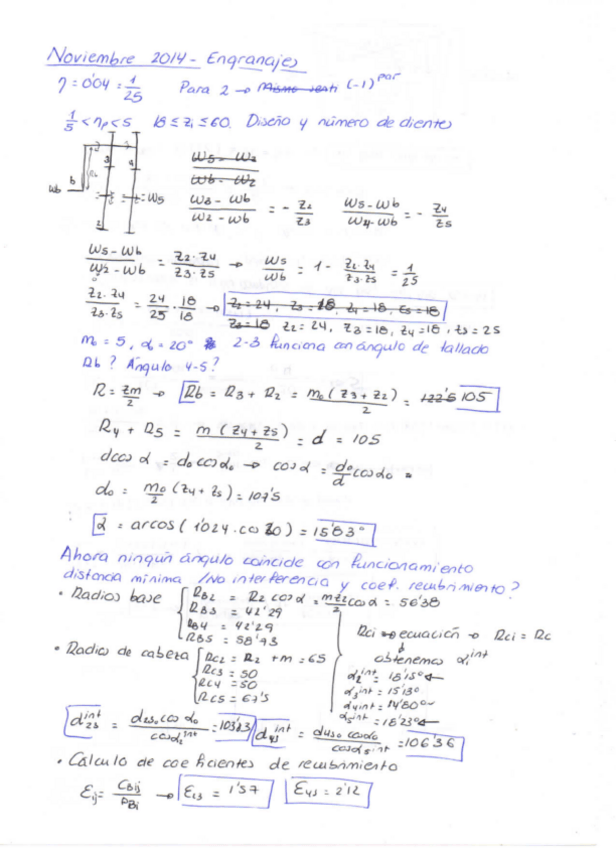 Noviembre 2014 - Engranajes
η = 0'04 = 1/25 Para 2 → Mismo senti (-1)^par
1/5 < ηp < 5 18 ≤ zi ≤ 60. Diseño y número de dientes
wb b Rb 2 3 4 5 w5
w5 - w3 / wb - w2
w3 - wb / w2 - wb = - z2/z3 w5 - wb / w4 - wb = - z4/z5
w5 - wb / w2 - wb = z2·z4 / z3·z5 → w5/wb = 1 - z2·z4 / z3·z5 = 1/25
z2·z4 / z3·z5 = 24/25 · 18/18 → z2 = 24, z3 = 18, z4 = 18, z5 = 18
z3 = 18 z2 = 24, z3 = 18, z4 = 18, z5 = 25
m0 = 5, α = 20° 2-3 funciona con ángulo de tallado
Rb? Ángulo 4-5?
R = zm/2 → Rb = R3 + R2 = m0(z3+z2)/2 = 122'5 105
R4 + R5 = m(z4+z5)/2 = d = 105
d cos α = d0 cos α0 → cos α = d0/d cos α0 =
d0 = m0/2 (z4 + z5) = 107'5
α = arcos(1'024 · cos 20) = 15'83°
Ahora ningún ángulo coincide con funcionamiento
distancia mínima /No interferencia y coef. recubrimiento?
• Radios base RB2 = R2 cos α = mz2/2 cos α = 56'38
RB3 = 42'29
RB4 = 42'29
RB5 = 58'93
Rci → ecuación → Rci = Rc
obtenemos αi^int
α2^int = 18'15°
α3^int = 15'13°
α4^int = 14'80°
α5^int = 18'23°
• Radios de cabeza Rc2 = R2 + m = 65
Rc3 = 50
Rc4 = 50
Rc5 = 67'5
d23^int = d230 cos α0 / cos α2^int = 103'83 d45^int = d450 cos α0 / cos α5^int = 106'36
• Cálculo de coeficientes de recubrimiento
εij = CBij / PBi → ε23 = 1'57 ε45 = 2'12